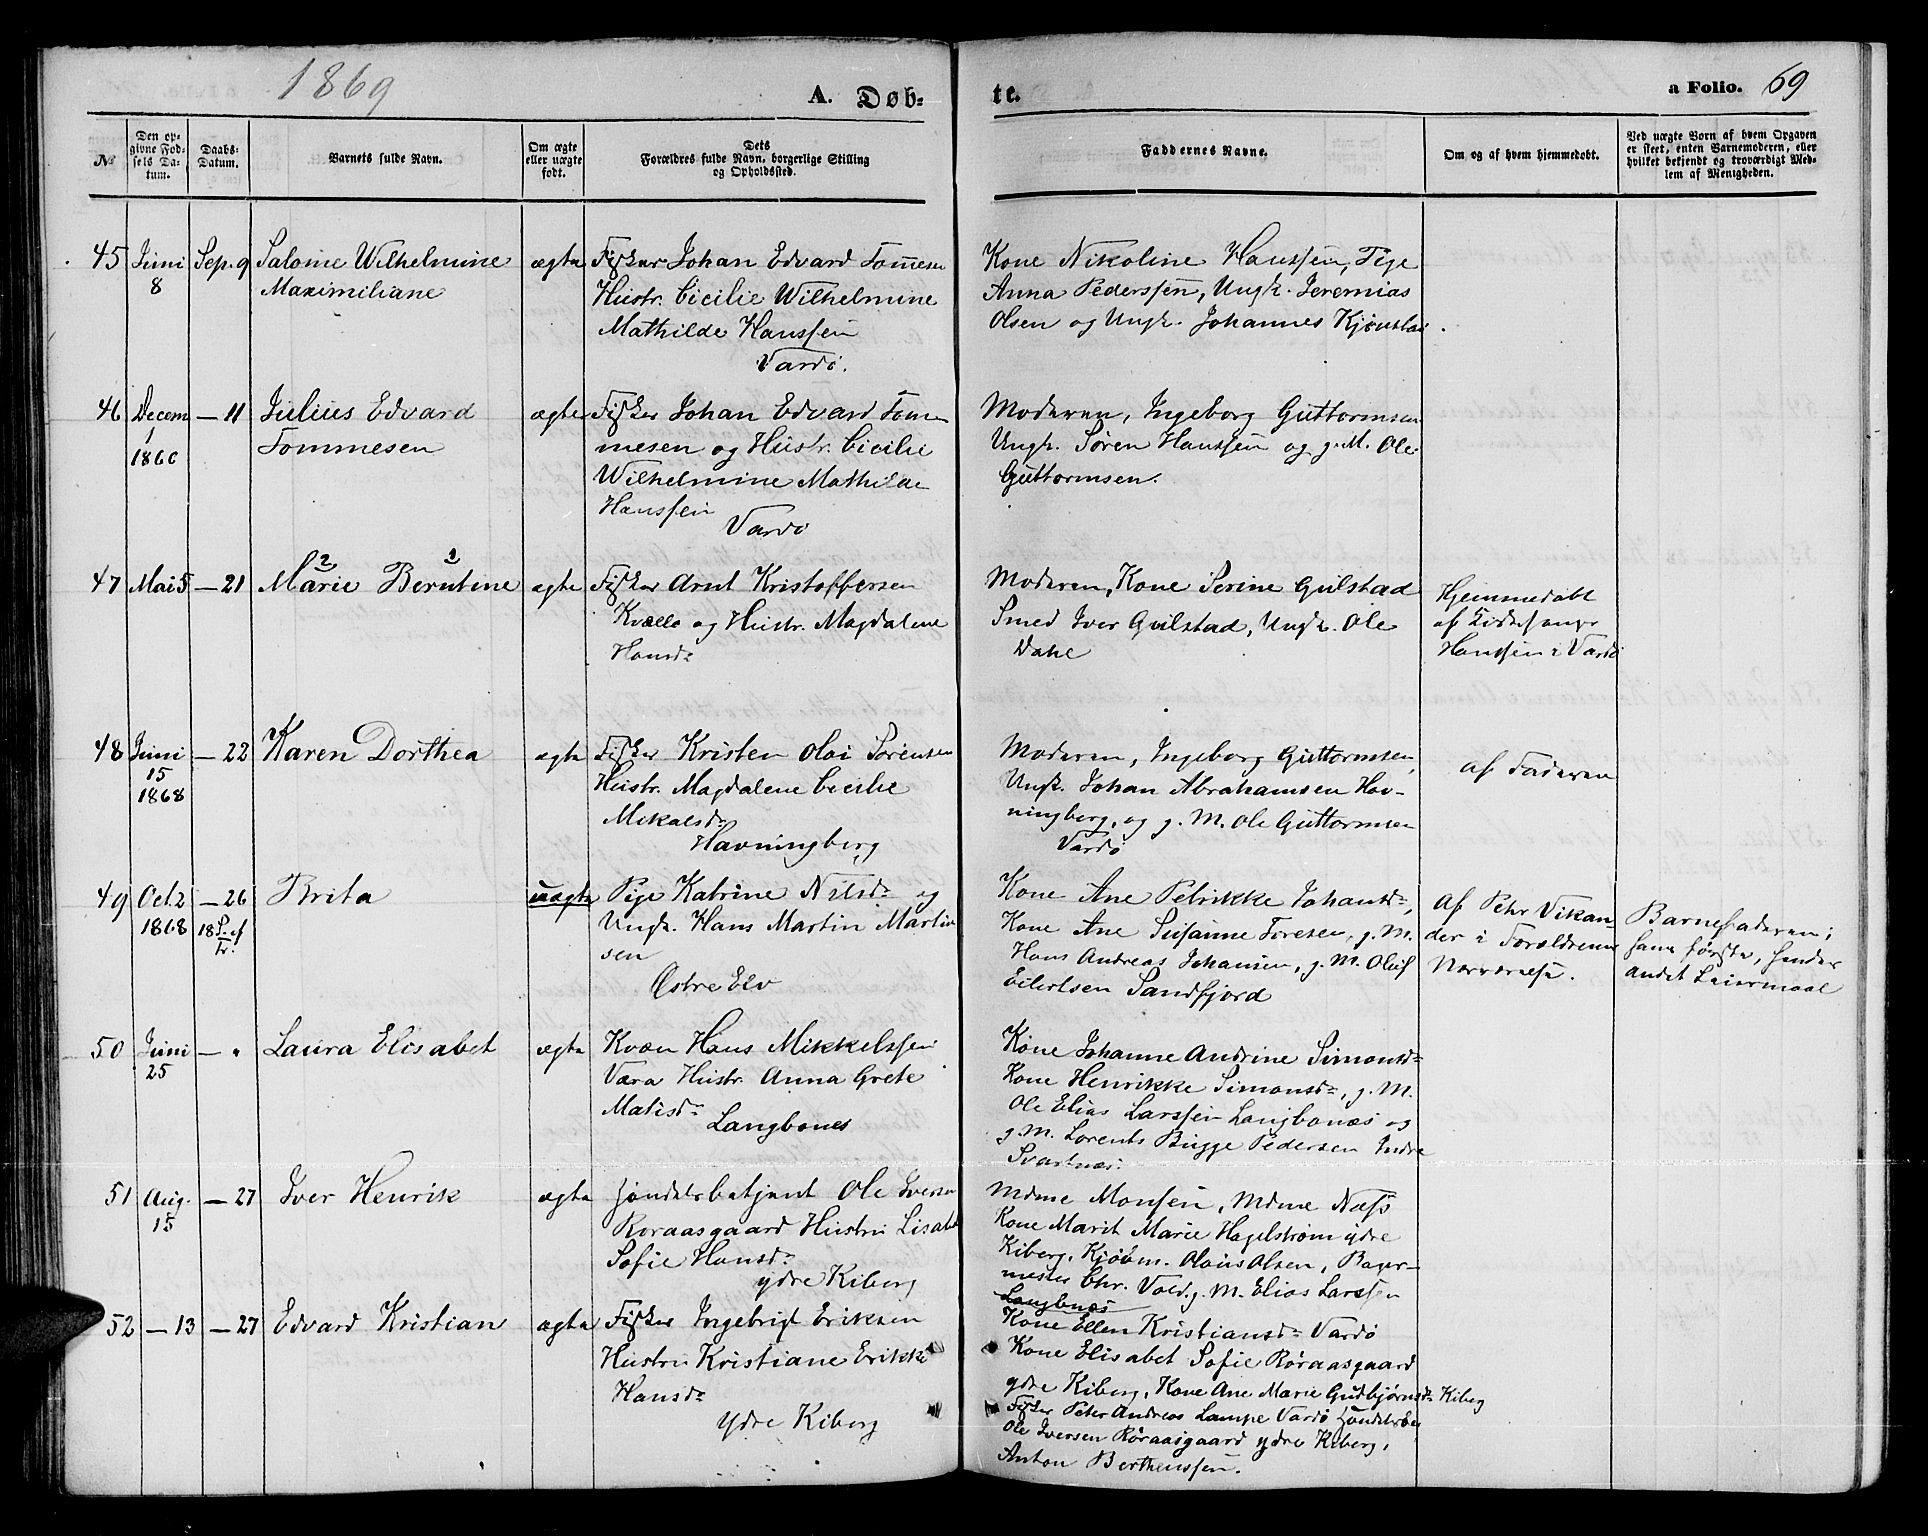 1869
A. Døb-
te.
a Folio. 69
No
Den op-
givne Fød-
sels Da-
tum.
Daabs-
Datum.
Barnets fulde Navn.
Om ægte
eller uægte
født.
Dets
Forældres fulde Navn, borgerlige Stilling
og Opholdssted.
Faddernes Navne.
Om og af hvem hjemmedøbt.
Ved uægte Born af hvem Opgaven
er skeet, enten Barnemoderen, eller
hvilket bekjendt og troværdigt Med-
lem af Menigheden.
45 Juni 8 Sep. 9
Salome Wilhelmine
Maximiliane
ægte
Fisker Johan Edvard Tom̄esen
Hustr. Cicilie Wilhelmine
Mathilde Hanssen
Vardö.
Kone Nikoline Hanssen, Pige
Anna Pederssen, Ungk. Jeremias
Olsen og Ungk. Johannes
46 Decem 1 1860 — 11
Julius Edvard
Tommesen
ægte
Fisker Johan Edvard Tom-
mesen og Hustr. Cicilie
Wilhelmine Mathilde
Hanssen
Vardö
Moderen, Ingeborg Guttormsen
Ungk. Sören Hanssen og g. M. Ole
Guttormsen.
47 Mai 5 — 21
2 1
Marie Berntine
ægte
Fisker Arnt Kristoffersen
Kvælle og Hustr. Magdalene
Hansd.
Moderen, Kone Serine Gulstad
Smed Iver Gulstad, Ungk. Ole
Dahl
Hjemmedøbt
af Kirkesanger
Hanssen i Vardö
48 Juni 15 1868 — 22
Karen Dorthea
ægte
Fisker Kristen Olai Sörensen
Hustr. Magdalene Cicilie
Mikalsd.
Havningberg
Moderen, Ingeborg Guttormsen,
Ungk. Johan Abrahamsen Hav-
ningberg, og g. M. Ole Guttormsen
Vardö
af Faderen
49 Oct. 2 1868 — 26
18 S. ef Tr.
Brita
uægte
Pige Katrine Nilsd. og
Ungk. Hans Martin Martin
sen
Østre Elv
Kone Ane Petrikke Johansd.,
Kone Ane Susanne Toresen, g. M.
Hans Andreas Johansen, g. M. Oluf
Eilertsen Sandfjord
af Petr Vikan-
der i Forældrenes
Nærværelse.
Barnefaderen;
hans første, hendes
andet Leiermaal
50 Juni 25 — "
Laura Elisabet
ægte
Kvæn Hans Mikkelssen
Vara Hustr. Anna Grete
Matisd.
Langbunes
Kone Johanne Andrine Simonsd.
Kone Henrikke Simonsd., g. M.
Ole Elias Larssen Langbunæs og
g. M. Lorents Bugge Pedersen Indre
Svartnæs.
51 Aug. 15 — 27
Iver Henrik
ægte
Handelsbetjent Ole Iversen
Roraasgaard Hustru Lisabet
Sofie Hansd.
ydre Kiberg
Mdme Monsen, Mdme Næss
Kone Marit Marie Hagelström ydre
Kiberg, Kjöbm. Olaus Olsen, Bager-
mester Chr. Vold, g. M. Elias Larssen
Langbnæs
52 — 13 — 27
Edvard Kristian
ægte
Fisker Ingebrigt Eriksen
Hustru Kristiane Erikke
Hansd.
Ydre Kiberg
Kone Ellen Kristiansd. Vardö
Kone Elisabet Sofie Röraasgaard
ydre Kiberg, Kone Ane Marie Gudbjørnsd. Kiberg
Fisker Peter Andreas Lampe Vardö Handelsbe
Ole Iversen Röraasgaard ydre Kiberg,
Anton Berthenssen.